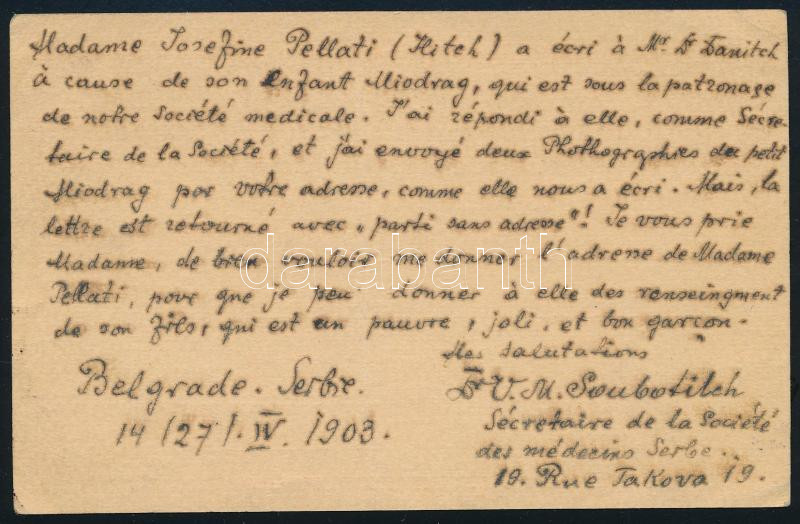 Madame Josefine Pellati (Hitch) a écri à Mr. Dr Danitch
à cause de son Enfant Miodrag, qui est sous la patronage
de notre Société medicale. J'ai répondi à elle, comme Sécre-
taire de la Société, et j'ai envoyé deux Phothographies du petit
Miodrag par votre adresse, comme elle nous a écri. Mais, la
lettre est retourné avec „parti sans adresse"! Je vous prie
Madame, de bien vouloir me donner l'adresse de Madame
Pellati, pour que je peu donner à elle des renseingment
de son fils, qui est un pauvre, joli, et bon garçon.
Mes salutations
Belgrade. Serbie.
Dr V. M. Soubotitch
14 (27). IV. 1903.
Sécretaire de la Société
des médecins Serbe.
19. Rue Takova 19.
darabanth